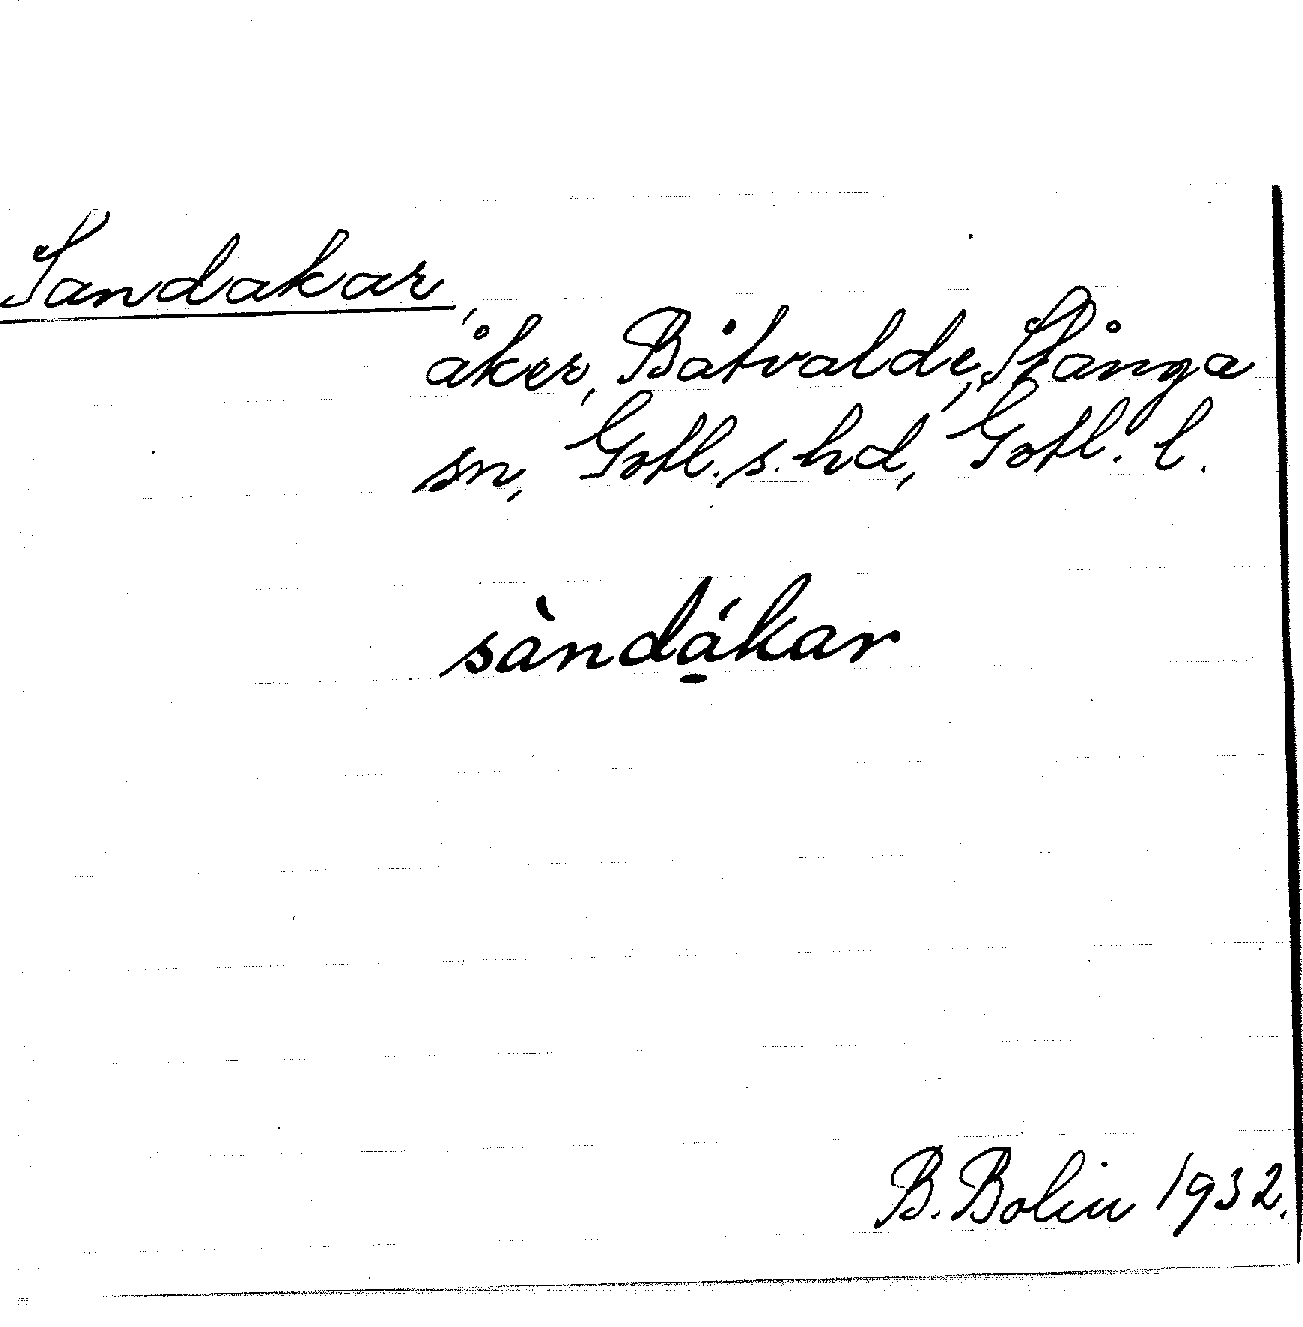 Sandakar,
åker, Båtvalde, Stånga
sn, Gotl. s. hd, Gotl. l.
sàndá̱kar
B. Bolin 1932.